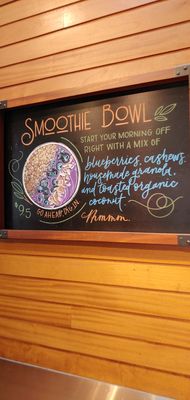 SMOOTHIE BOWL
START YOUR MORNING OFF
RIGHT WITH A MIX OF
blueberries, cashews,
housemade granola,
and toasted organic
coconut.
Mmmm.
GO AHEAD, DIG IN
9.5